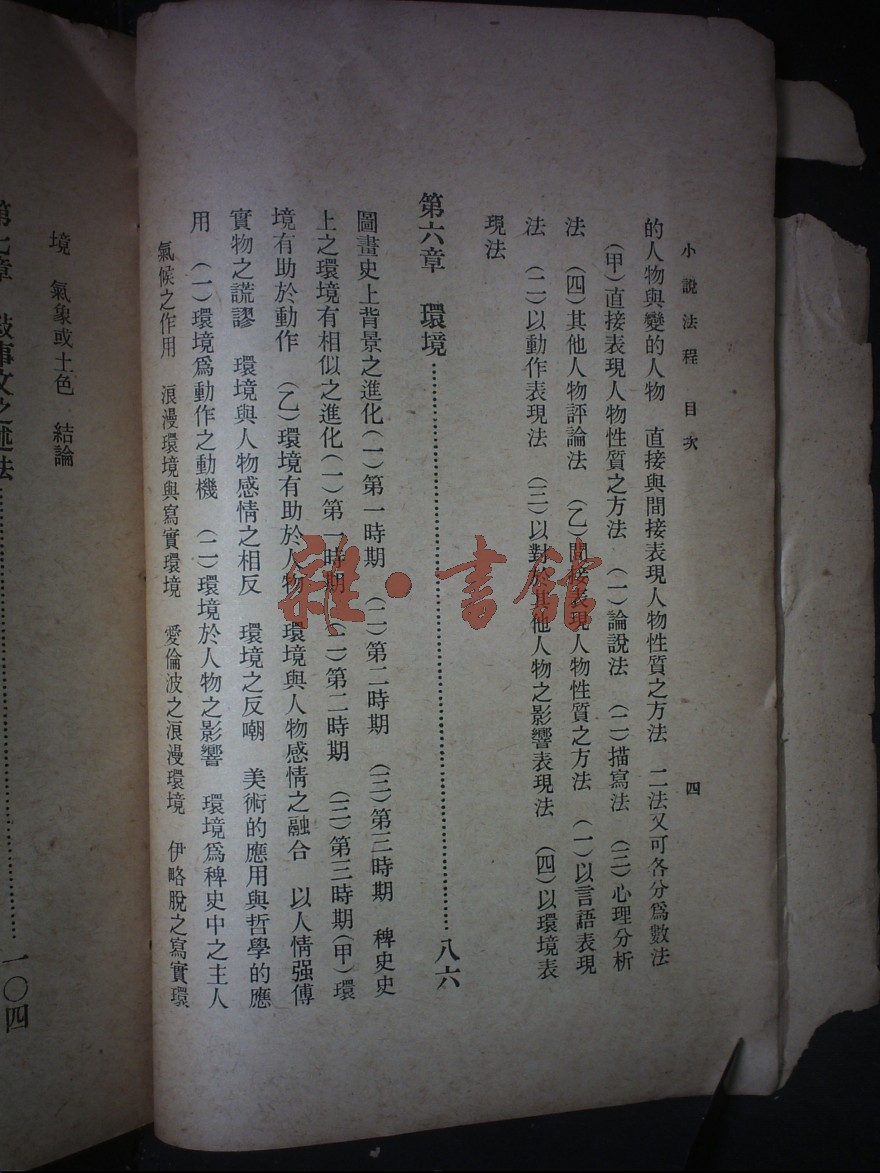 小說法程 目次 四
的人物與變的人物 直接與間接表現人物性質之方法 二法又可各分爲數法
(甲)直接表現人物性質之方法 (一)論說法 (二)描寫法 (三)心理分析
法 (四)其他人物評論法 (乙)間接表現人物性質之方法 (一)以言語表現
法 (二)以動作表現法 (三)以對於其他人物之影響表現法 (四)以環境表
現法
第六章 環境……八六
圖畫史上背景之進化(一)第一時期 (二)第二時期 (三)第三時期 稗史史
上之環境有相似之進化(一)第一時期 (二)第二時期 (三)第三時期(甲)環
境有助於動作 (乙)環境有助於人物 環境與人物感情之融合 以人情强傅
實物之謊謬 環境與人物感情之相反 環境之反嘲 美術的應用與哲學的應
用 (一)環境爲動作之動機 (二)環境於人物之影響 環境爲稗史中之主人
氣候之作用 浪漫環境與寫實環境 愛倫波之浪漫環境 伊略脫之寫實環
境 氣象或土色 結論
第七章 敍事文之述法……一〇四
雜·書館